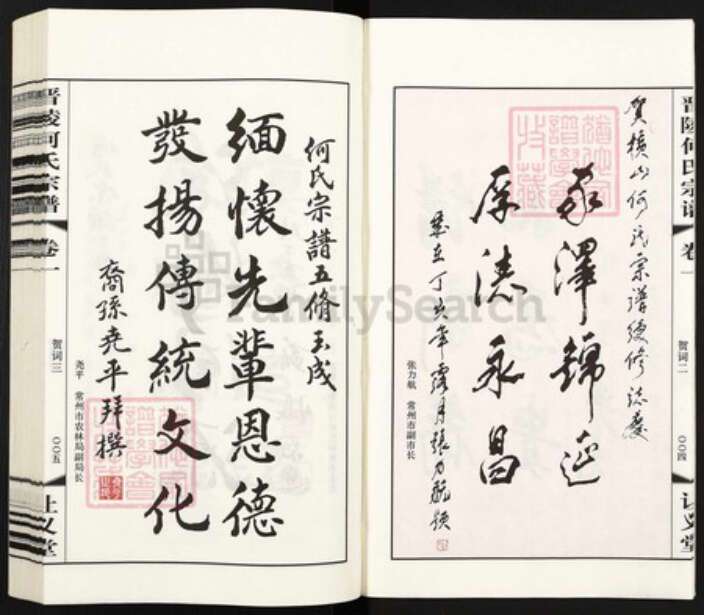 晋陵何氏宗谱
卷一
贺词二
〇〇四
贺横山何氏宗譜续修誌慶
家澤錦延
厚德永昌
歲在丁亥年露月張力航题
张力航 常州市副市长
FamilySearch
何氏宗譜五脩玉成
緬懷先輩恩德
發揚傳統文化
裔孫堯平拜撰
尧平 常州市农林局副局长
晋陵何氏宗谱
卷一
贺词三
〇〇五